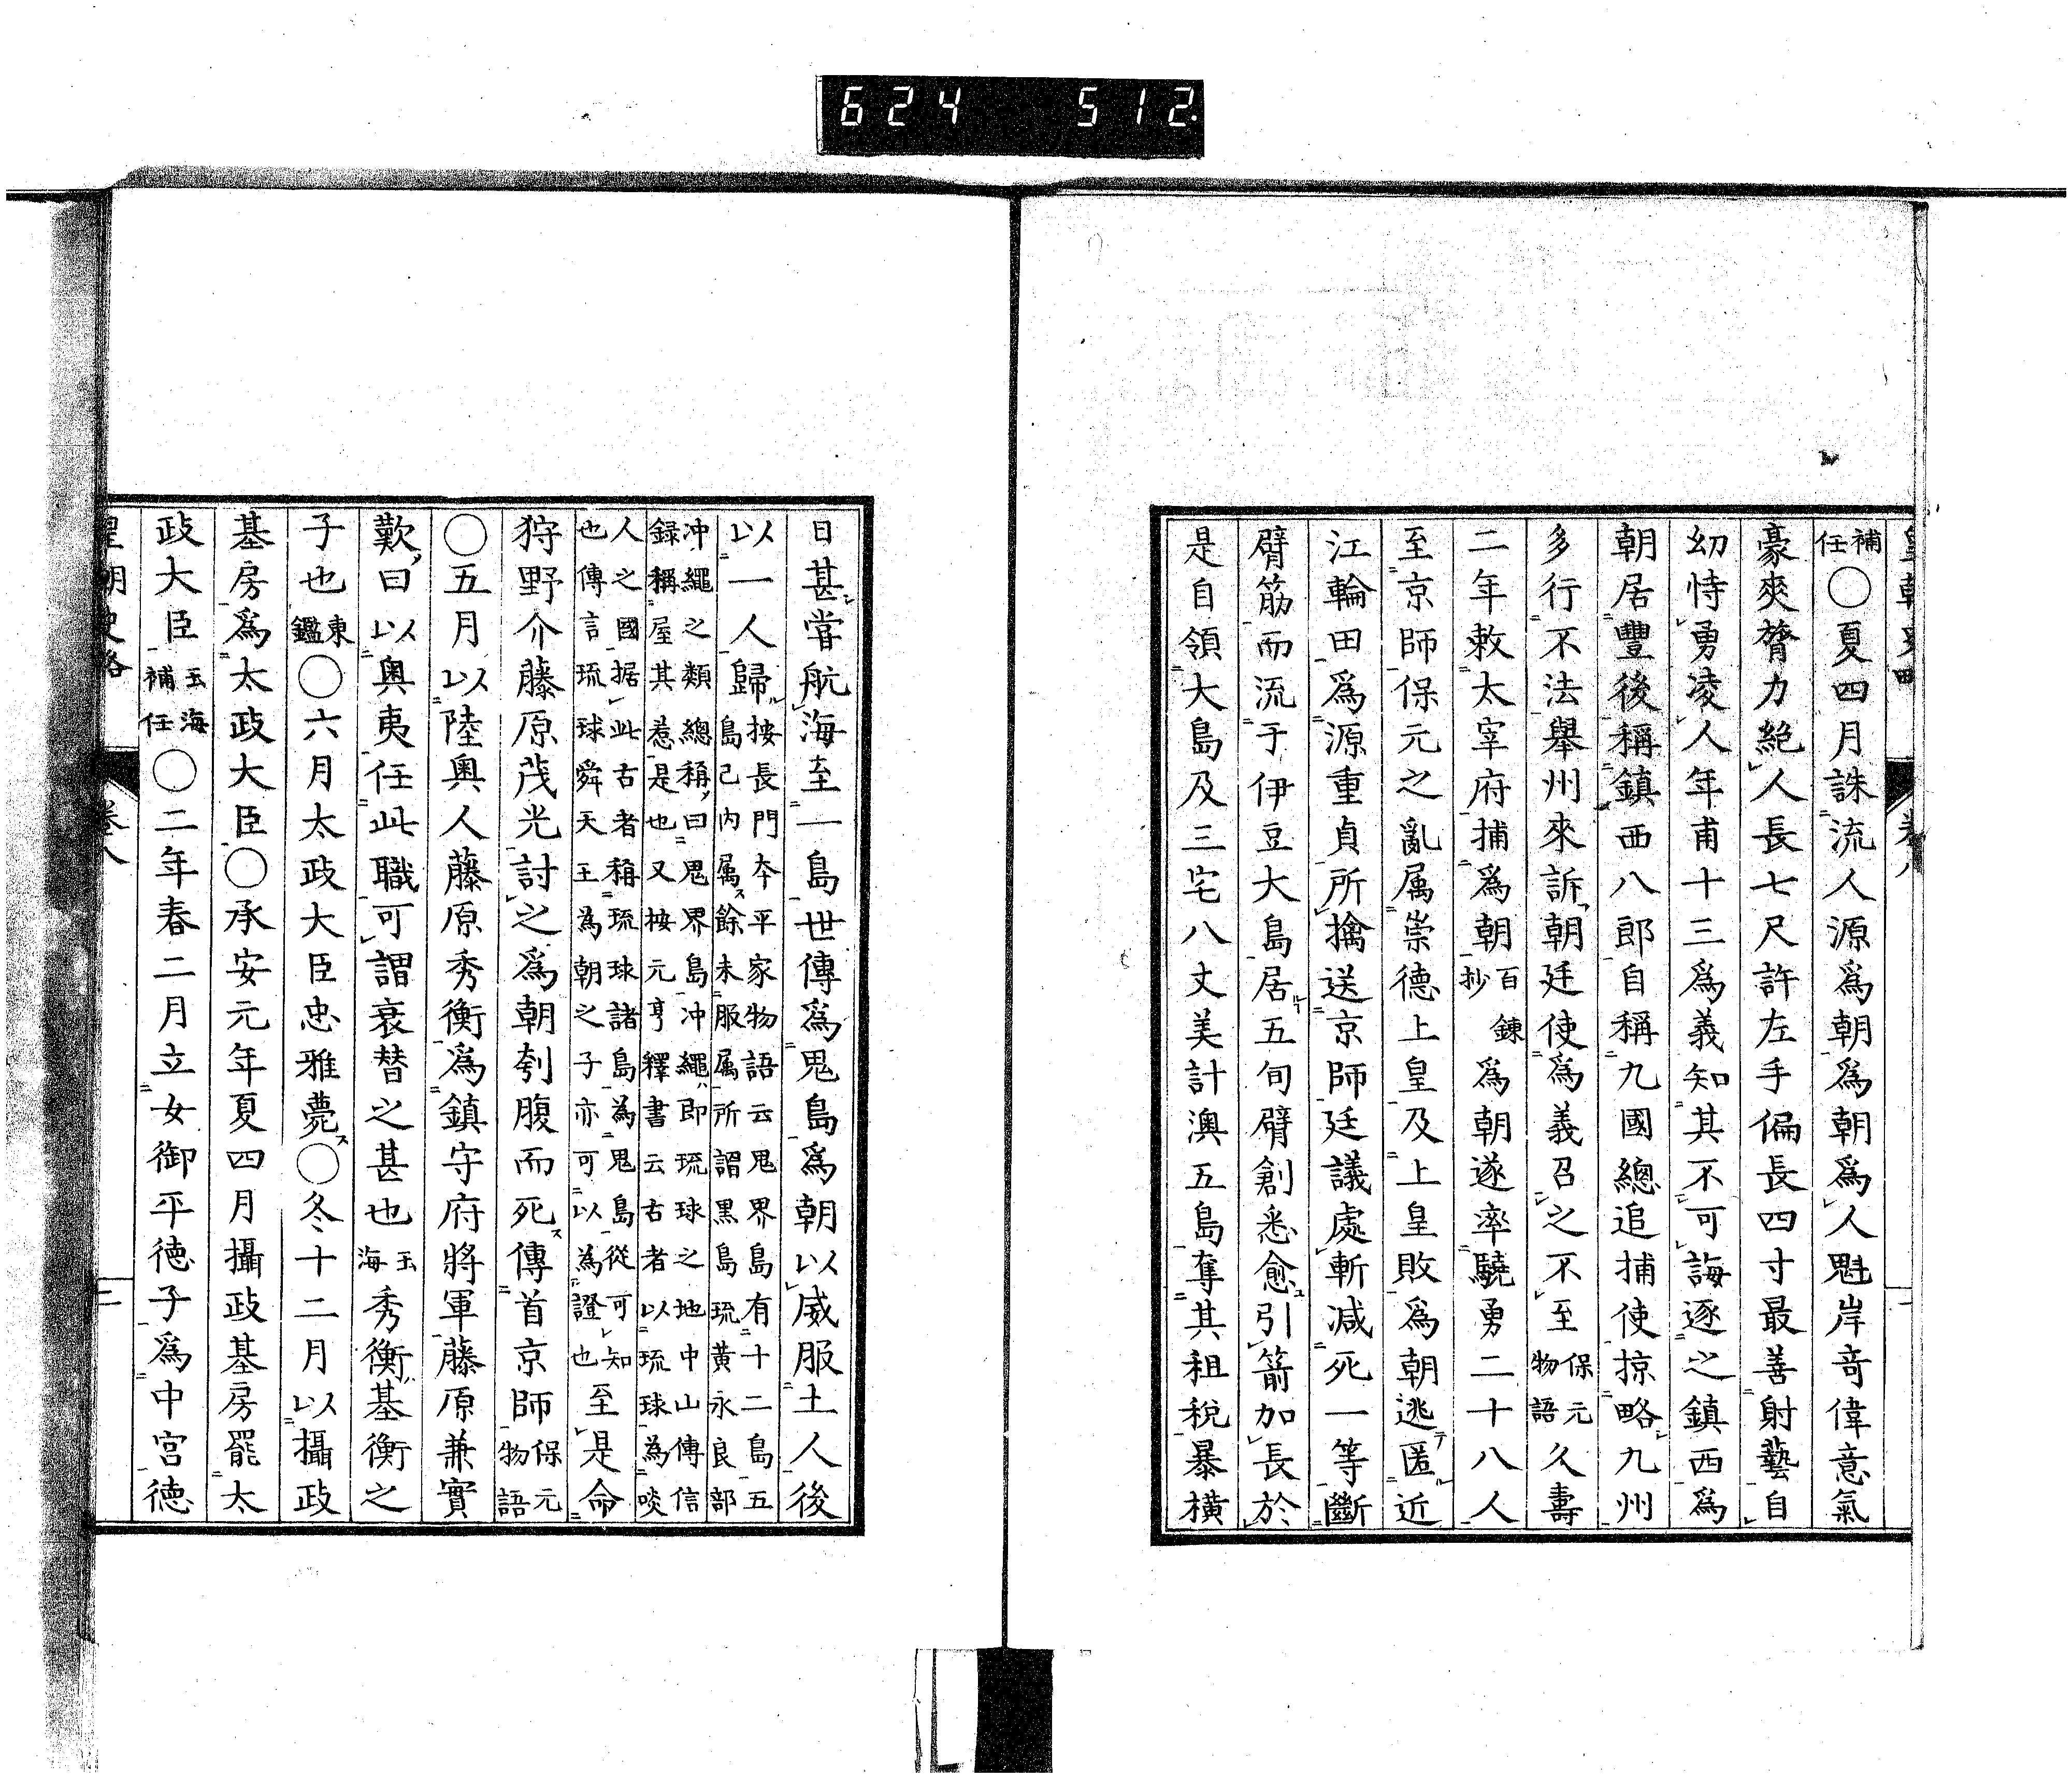 624 512
皇朝史略 卷八 一
補任〇夏四月誅流人源爲朝爲朝爲人魁岸奇偉意氣
豪爽膂力絶人長七尺許左手偏長四寸最善射藝自
幼恃勇凌人年甫十三爲義知其不可誨逐之鎮西爲
朝居豐後稱鎮西八郎自稱九國總追捕使掠略九州
多行不法舉州來訴朝廷使爲義召之不至保元物語久壽
二年敕太宰府捕爲朝百鍊抄爲朝遂率驍勇二十八人
至京師保元之亂属崇德上皇及上皇敗爲朝逃匿近
江輪田爲源重貞所擒送京師廷議處斬減死一等斷
臂筋而流于伊豆大島居五旬臂創悉愈引箭加長於
是自領大島及三宅八丈美計澳五島奪其租税暴橫
日甚嘗航海至一島世傳爲鬼島爲朝以威服土人後
以一人歸按長門本平家物語云鬼界島有十二島五島己内属餘未服属所謂黒島琉黄永良部
冲繩之類總稱曰鬼界島冲繩即琉球之地中山傳信録稱屋其惹是也又按元亨釋書云古者以琉球為啖
人之國据此古者稱琉球諸島為鬼島從可知也傳言琉球舜天王為朝之子亦可以為證也至是命
狩野介藤原茂光討之爲朝刳腹而死傳首京師保元物語
〇五月以陸奥人藤原秀衡爲鎮守府將軍藤原兼實
歎曰以奥夷任此職可謂衰替之甚也玉海秀衡基衡之
子也東鑑〇六月太政大臣忠雅薨〇冬十二月以攝政
基房爲太政大臣〇承安元年夏四月攝政基房罷太
政大臣玉海補任〇二年春二月立女御平徳子爲中宮徳
皇朝史略 卷八 二